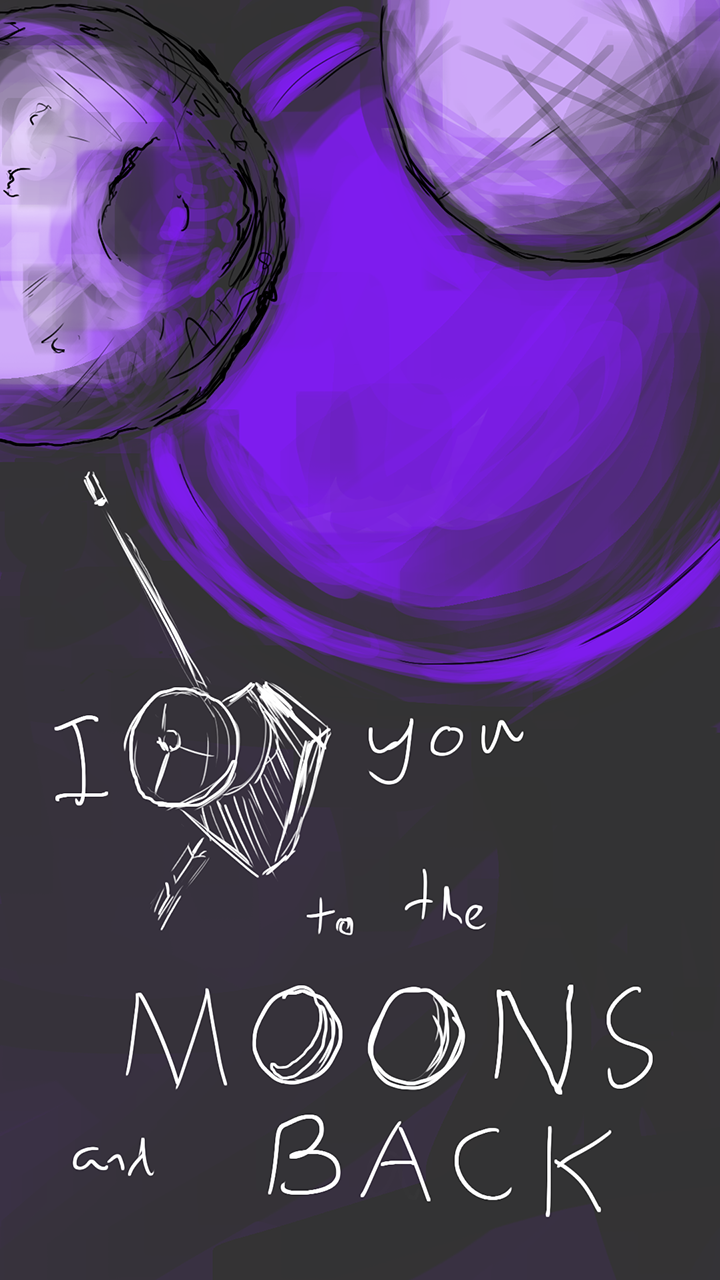 I you
to the
MOONS
and BACK